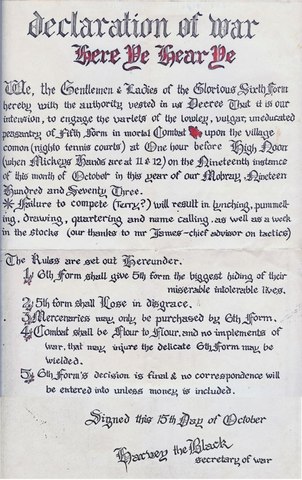 declaration of war
Here Ye Hear Ye
We, the Gentlemen & Ladies of the Glorious Sixth Form
hereby with the authority vested in us Decree That it is our
intension, to engage the varlets of the lowley, vulgar, uneducated
peasantry of Fifth Form in mortal Combat upon the village
comon (nighto tennis courts) at One hour before High Noon
(when Mickeys Hands are at 11 & 12) on the Nineteenth instance
of this month of October in this year of our Mobray, Nineteen
Hundred and Seventy Three.
* Failure to compete (Terry?) will result in Lynching, pummel-
ing, drawing, quartering and name calling, as well as a week
in the stocks (our thanks to mr James-chief advisor on tactics)
The Rules are set out Hereunder.
1 6th Form shall give 5th form the biggest hiding of their
miserable intolerable lives.
2 5th form shall Lose in disgrace.
3 Mercenaries may only be purchased by 6th Form.
4 Combat shall be Flour to Flour, and no implements of
war, that may injure the delicate 6th Form may be
wielded.
5 6th Form's decision is final & no correspondence will
be entered into unless money is included.
Signed this 15th Day of October
Harvey the Black
secretary of war